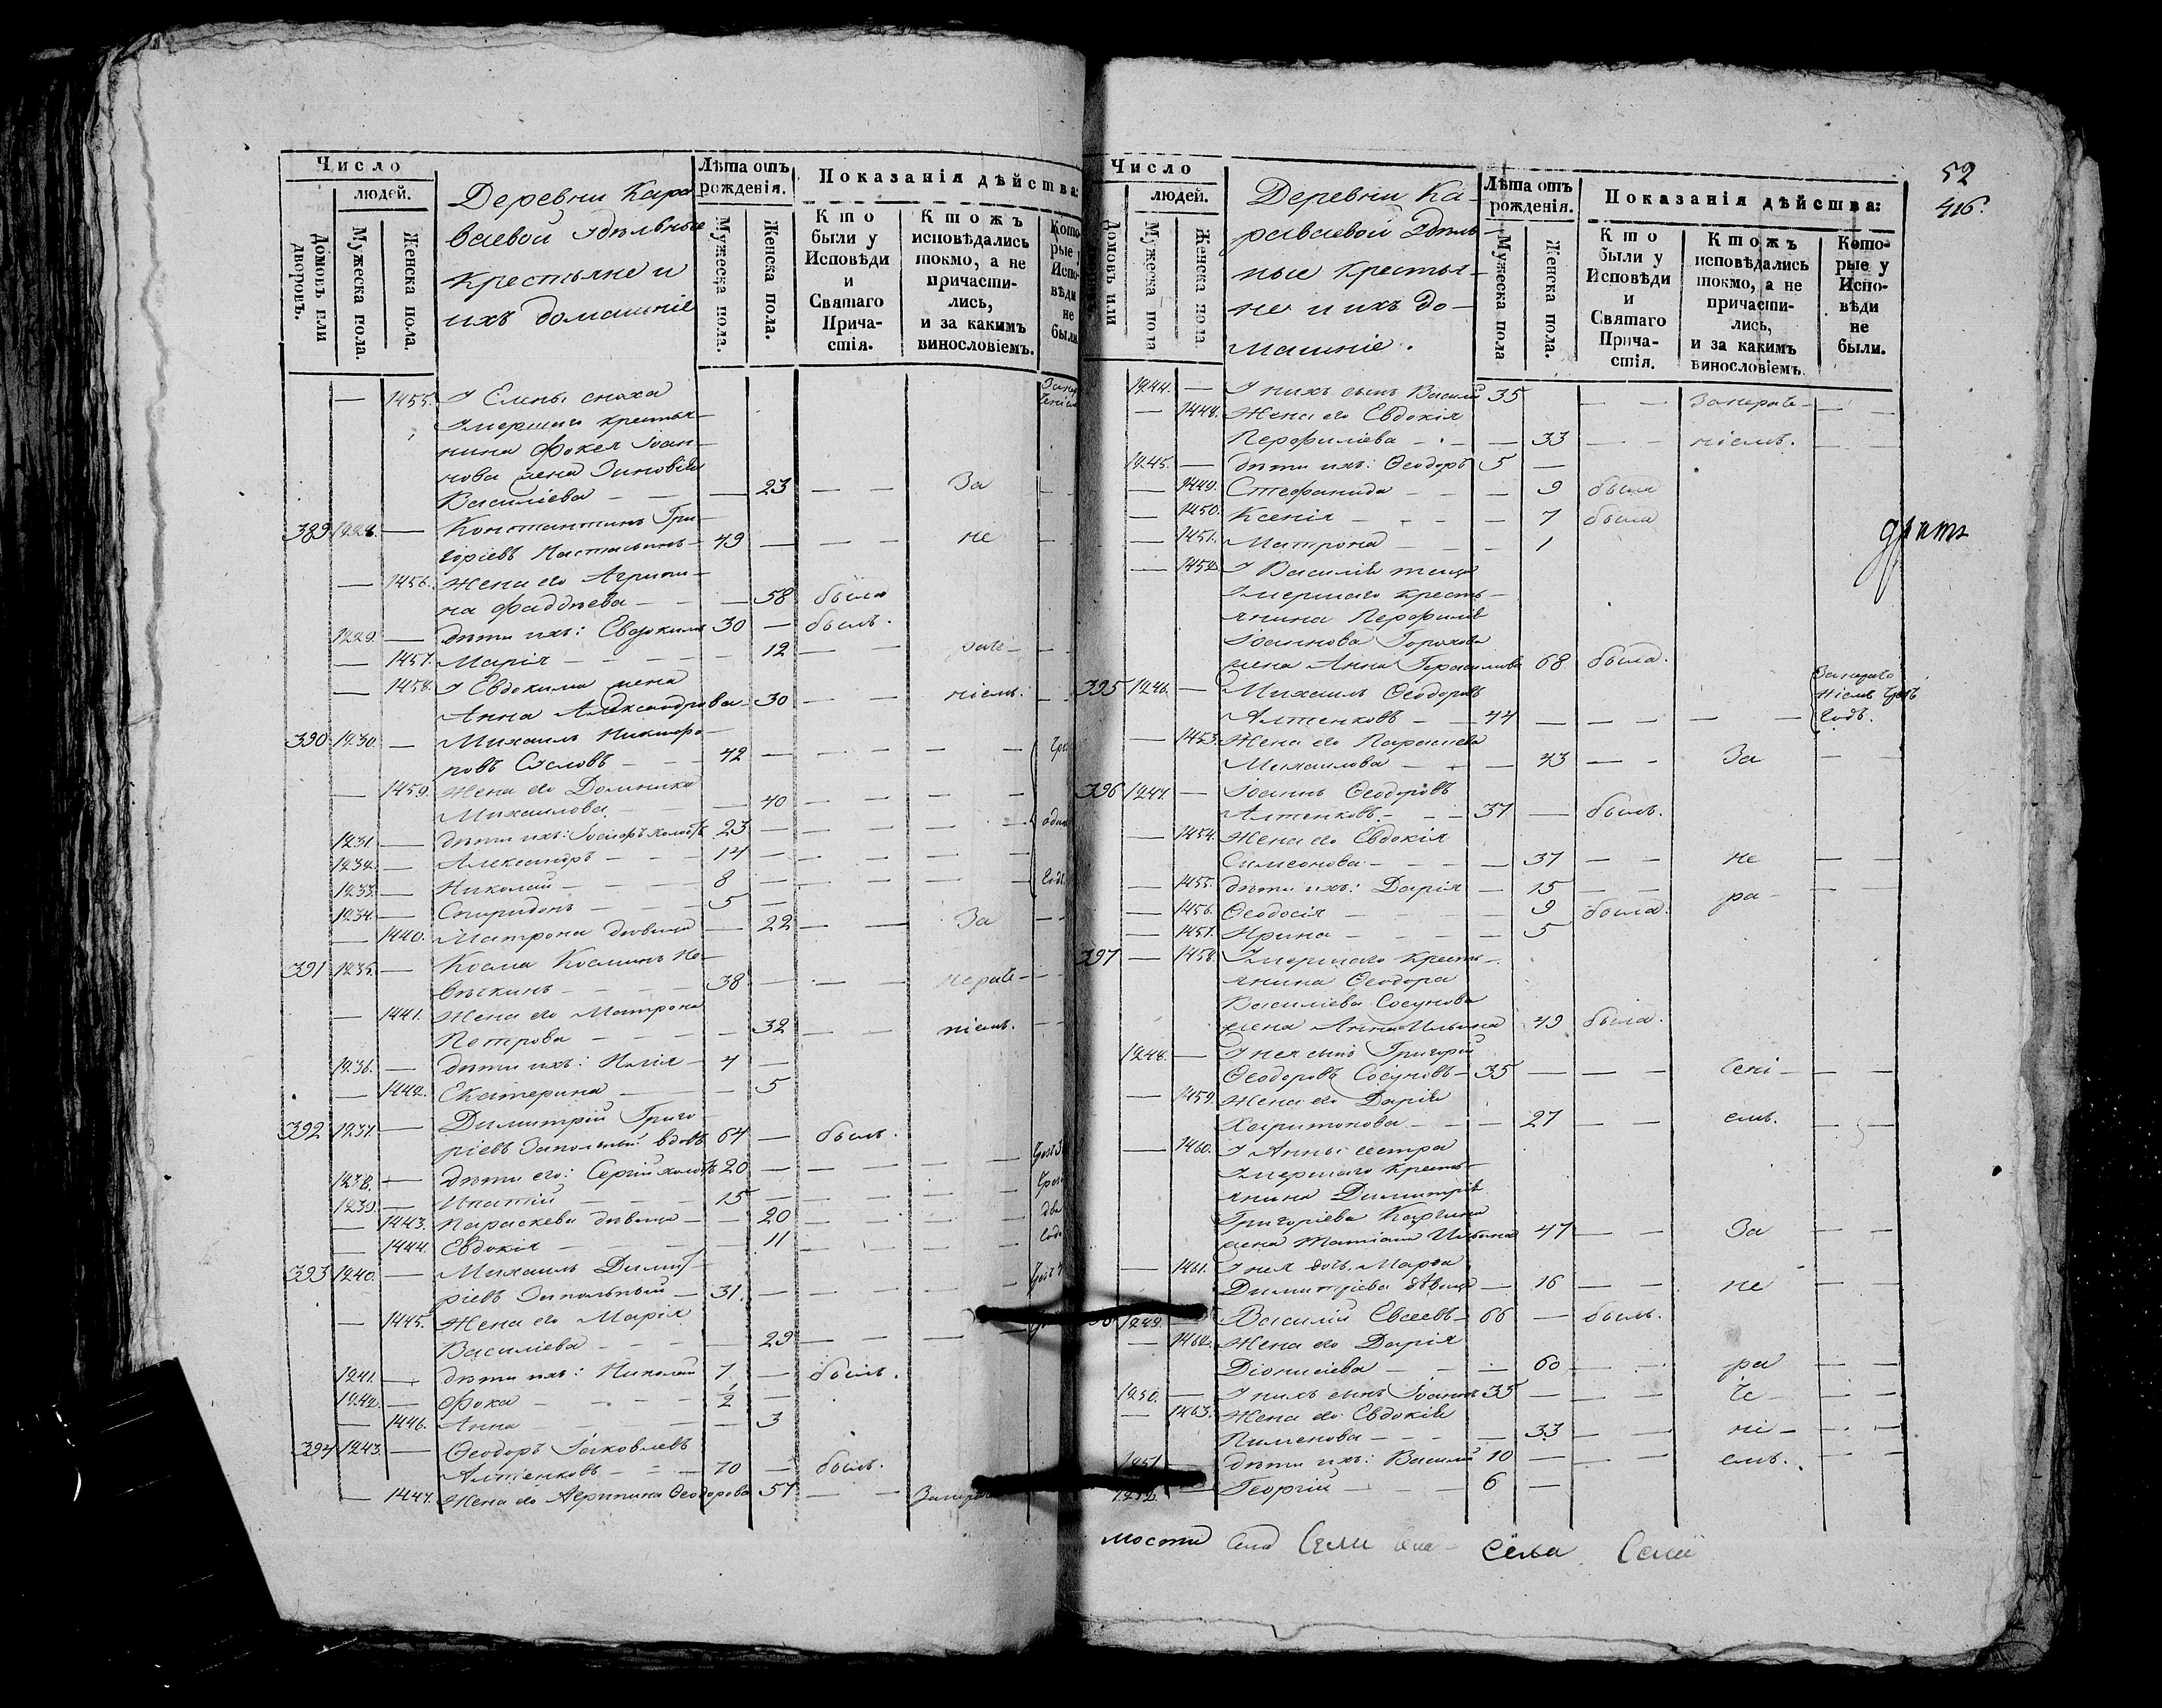 Число
людей.
Домовъ или дворовъ.
Мужеска пола.
Женска пола.
Деревни Кара
ваевой Удѣльные
крестьяне и
ихъ домашніе
Лѣта отъ рожденія.
Мужеска пола.
Женска пола.
Показанія дѣйства:
Кто были у Исповѣди и Святаго Прича-стія.
Ктожъ исповѣдались токмо, а не причасти-лись, и за какимъ винословіемъ.
Кото-рые у Испо-вѣди не были.
— 1435. У Елены сноха
Умершаго крестья-
нина Фокея Іоан-
нова жена Зиновія
Василіева — — — 23 — — За
389 1228. — Константинъ Гри-
горіевъ — 49 — — — не —
— 1436. Жена его Агрипи-
на Фаддѣева — — 58 была
1229. — дѣти ихъ: Евдокимъ 30 — былъ.
— 1437. Марія — — — — 12 — — раче-
— 1438. У Евдокима жена
Анна Александрова — 30 — — ніемъ.
390 1230. — Михаилъ Никифо-
ровъ Сусловъ — — 42 — — — — —
— 1439. Жена его Домника
Михаилова — 40 — — — —
1231 — дѣти ихъ: Іосифъ холостъ 23 — — — — —
1232. — Александръ — — — 14 — — — — —
1233. — Николай — — — 8 — — — — —
1234. — Спиридонъ — — — 5 —
— 1440. Матрона дѣвица — 22 — — За — —
391 1235. — Косма Косминъ Не-
— — — 38 — — — нераче- —
— 1441. Жена его Матрона
Петрова — — — — 32 — — ніемъ. — —
1236. — дѣти ихъ: Илія — 4 —
— 1442. Екатерина — — — 5
392 1237. — Димитрій Григо-
ріевъ Запольный вдовъ 64 — былъ.
1238. — дѣти его: Сергій холостъ 20 — — — — —
1239. — Ипатій — — — 15 — — — — —
— 1443. Параскева дѣвица — — 20 — — — —
— 1444. Евдокія — — — — 11 — — — —
393 1240. — Михаилъ Димит-
ріевъ Запольный — 31. — — — — —
— 1445. Жена его Марія
Василіева — — — — 29 — — — —
1241. — дѣти ихъ: Николай 7 — былъ.
1242. — Фока — — — — 1/2 —
— 1446. Анна — — — — 3
394 1243. — Ѳеодоръ Іаковлевъ
Алтенковъ — — — 70 — былъ.
— 1447. Жена его Агрипина Ѳеодорова 57 — —
Число
людей.
Домовъ или
Мужеска пола
Женска пола.
Деревни Ка-
раваевой Удѣль-
ные крестья-
не и ихъ до-
машніе.
Лѣта отъ рожденія.
Мужеска пола
Женска пола.
Показанія дѣйства:
Кто были у Исповѣди и Святаго Прича-стія.
Ктожъ исповѣдались токмо, а не причасти-лись, и за какимъ винословіемъ
Кото-рые у Испо-вѣди не были.
52
416.
1244. — У нихъ сынъ Василій 35 — — Занераче- — —
— 1448. Жена его Евдокія
Перфиліева — — — 33 — — ніемъ. — —
1245. — дѣти ихъ: Ѳеодоръ 5 —
— 1449. Стефанида — — — 9 была
— 1450. Ксенія — — — — 7 была
— 1451. Матрона — — — 1
— 1452. У Василія теща
Умершаго кресть-
янина Перфилія
Іоаннова
жена Анна Герасимова 68 была.
395 1246. — Михаилъ Ѳеодоровъ
Алтенковъ — — 44 — — — — —
— 1453. Жена его Параскева
Михаилова — — — 43 — — За — —
396 1247. — Іоаннъ Ѳеодоровъ
Алтенковъ — — — 37 — былъ.
— 1454. Жена его Евдокія
Симеонова — — — — 37 — — не — —
— 1455. дѣти ихъ: Дарія — 15 — — ра- —
— 1456. Ѳеодосія — — — — 9 была.
— 1457. Ирина — — — — 5
397 — 1458. Умершаго кресть-
янина Ѳеодора
Василіева Сосунова
жена Анна Ильина 49 была.
1248. — У нея сынъ Григорій
Ѳеодоровъ Сосуновъ — 35 — — — чені- — —
— 1459. Жена его Дарія
Харитонова — — — 27 — — емъ. — —
— 1460. У Анны сестра
Умершаго кресть-
янина Димитрія
Григоріева
жена Татіана Ильина 47 — — За — —
— 1461. У нея дочь Марѳа
Димитріева дѣвица — 16 — — не — —
1249. Василій Евсеевъ — 66 — былъ.
— 1462. Жена его Дарія
Діонисіева — — — 60 — — ра — —
1250. — У нихъ сынъ Іоаннъ 35 — — — че — —
— 1463. Жена его Евдокія
Пименова — — — — 33 — — ні- — —
1251 дѣти ихъ: Василій 10 — — — емъ.
1252. Георгій — — 6 —